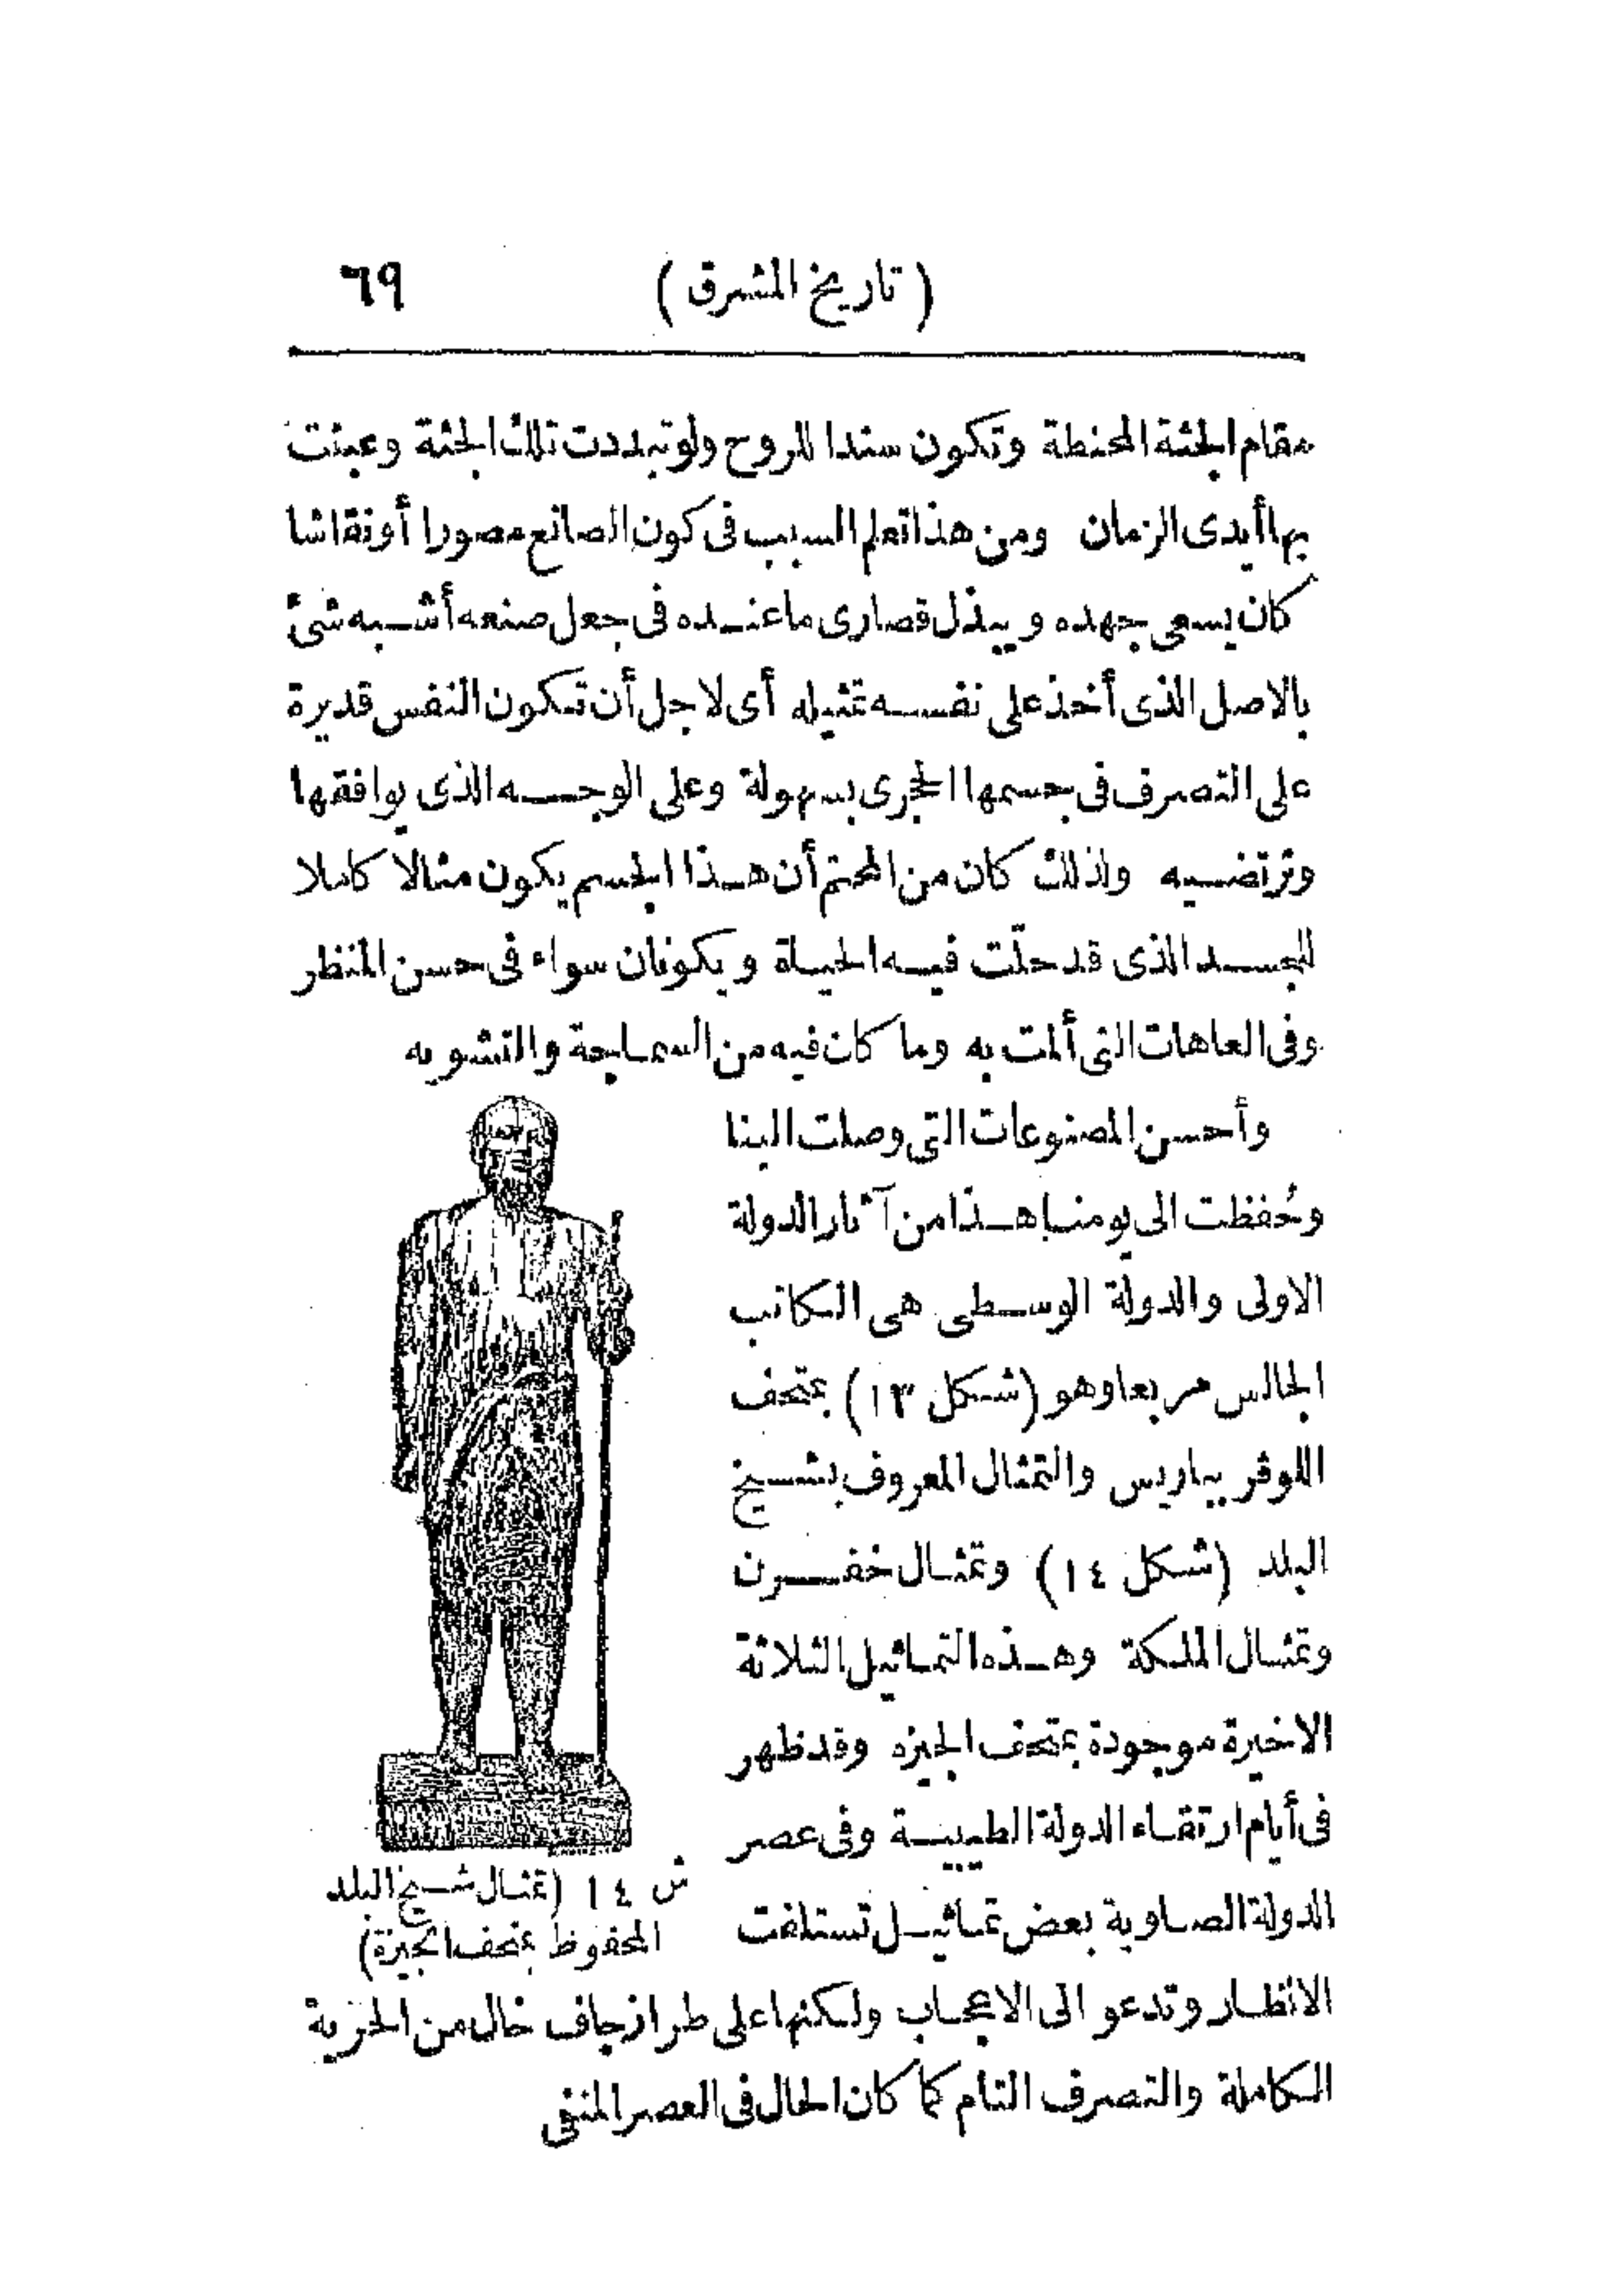 ( تاريخ المشرق ) ٦٩
مقام الجثة المحنطة وتكون سندا للروح ولو تبددت تلك الجثة وعبثت
بها أيدى الزمان ومن هذا تعلم السبب فى كون الصانع مصورا أو نقاشا
كان يسعى جهده ويبذل قصارى ما عنده فى جعل صنعه أشبه شئ
بالاصل الذى أخذ على نفسه تمثيله أى لاجل أن تكون النفس قديرة
على التصرف فى جسمها الحجرى بسهولة وعلى الوجه الذى يوافقها
وترتضيه ولذلك كان من المحتم أن هذا الجسم يكون مثالا كاملا
للجسد الذى قد حلّت فيه الحياة ويكونان سواء فى حسن المنظر
وفى العاهات التى ألمت به وما كان فيه من السماجة والتشويه
وأحسن المصنوعات التى وصلت الينا
وحُفظت الى يومنا هذا من آثار الدولة
الاولى والدولة الوسطى هى الكاتب
الجالس مربعا وهو (شكل ١٣) بمتحف
اللوڤر بباريس والتمثال المعروف بشيخ
البلد (شكل ١٤) وتمثال خفرن
وتمثال الملكة وهذه التماثيل الثلاثة
الاخيرة موجودة بمتحف الجيزه وقد ظهر
فى أيام ارتقاء الدولة الطيبية وفى عصر
الدولة الصاوية بعض تماثيل تستلفت
الانظار وتدعو الى الاعجاب ولكنها على طراز جاف خال من الحرية
الكاملة والتصرف التام كما كان الحال فى العصر المنفى
ش ١٤ (تمثال شيخ البلد
المحفوظ بمتحف الجيزة)